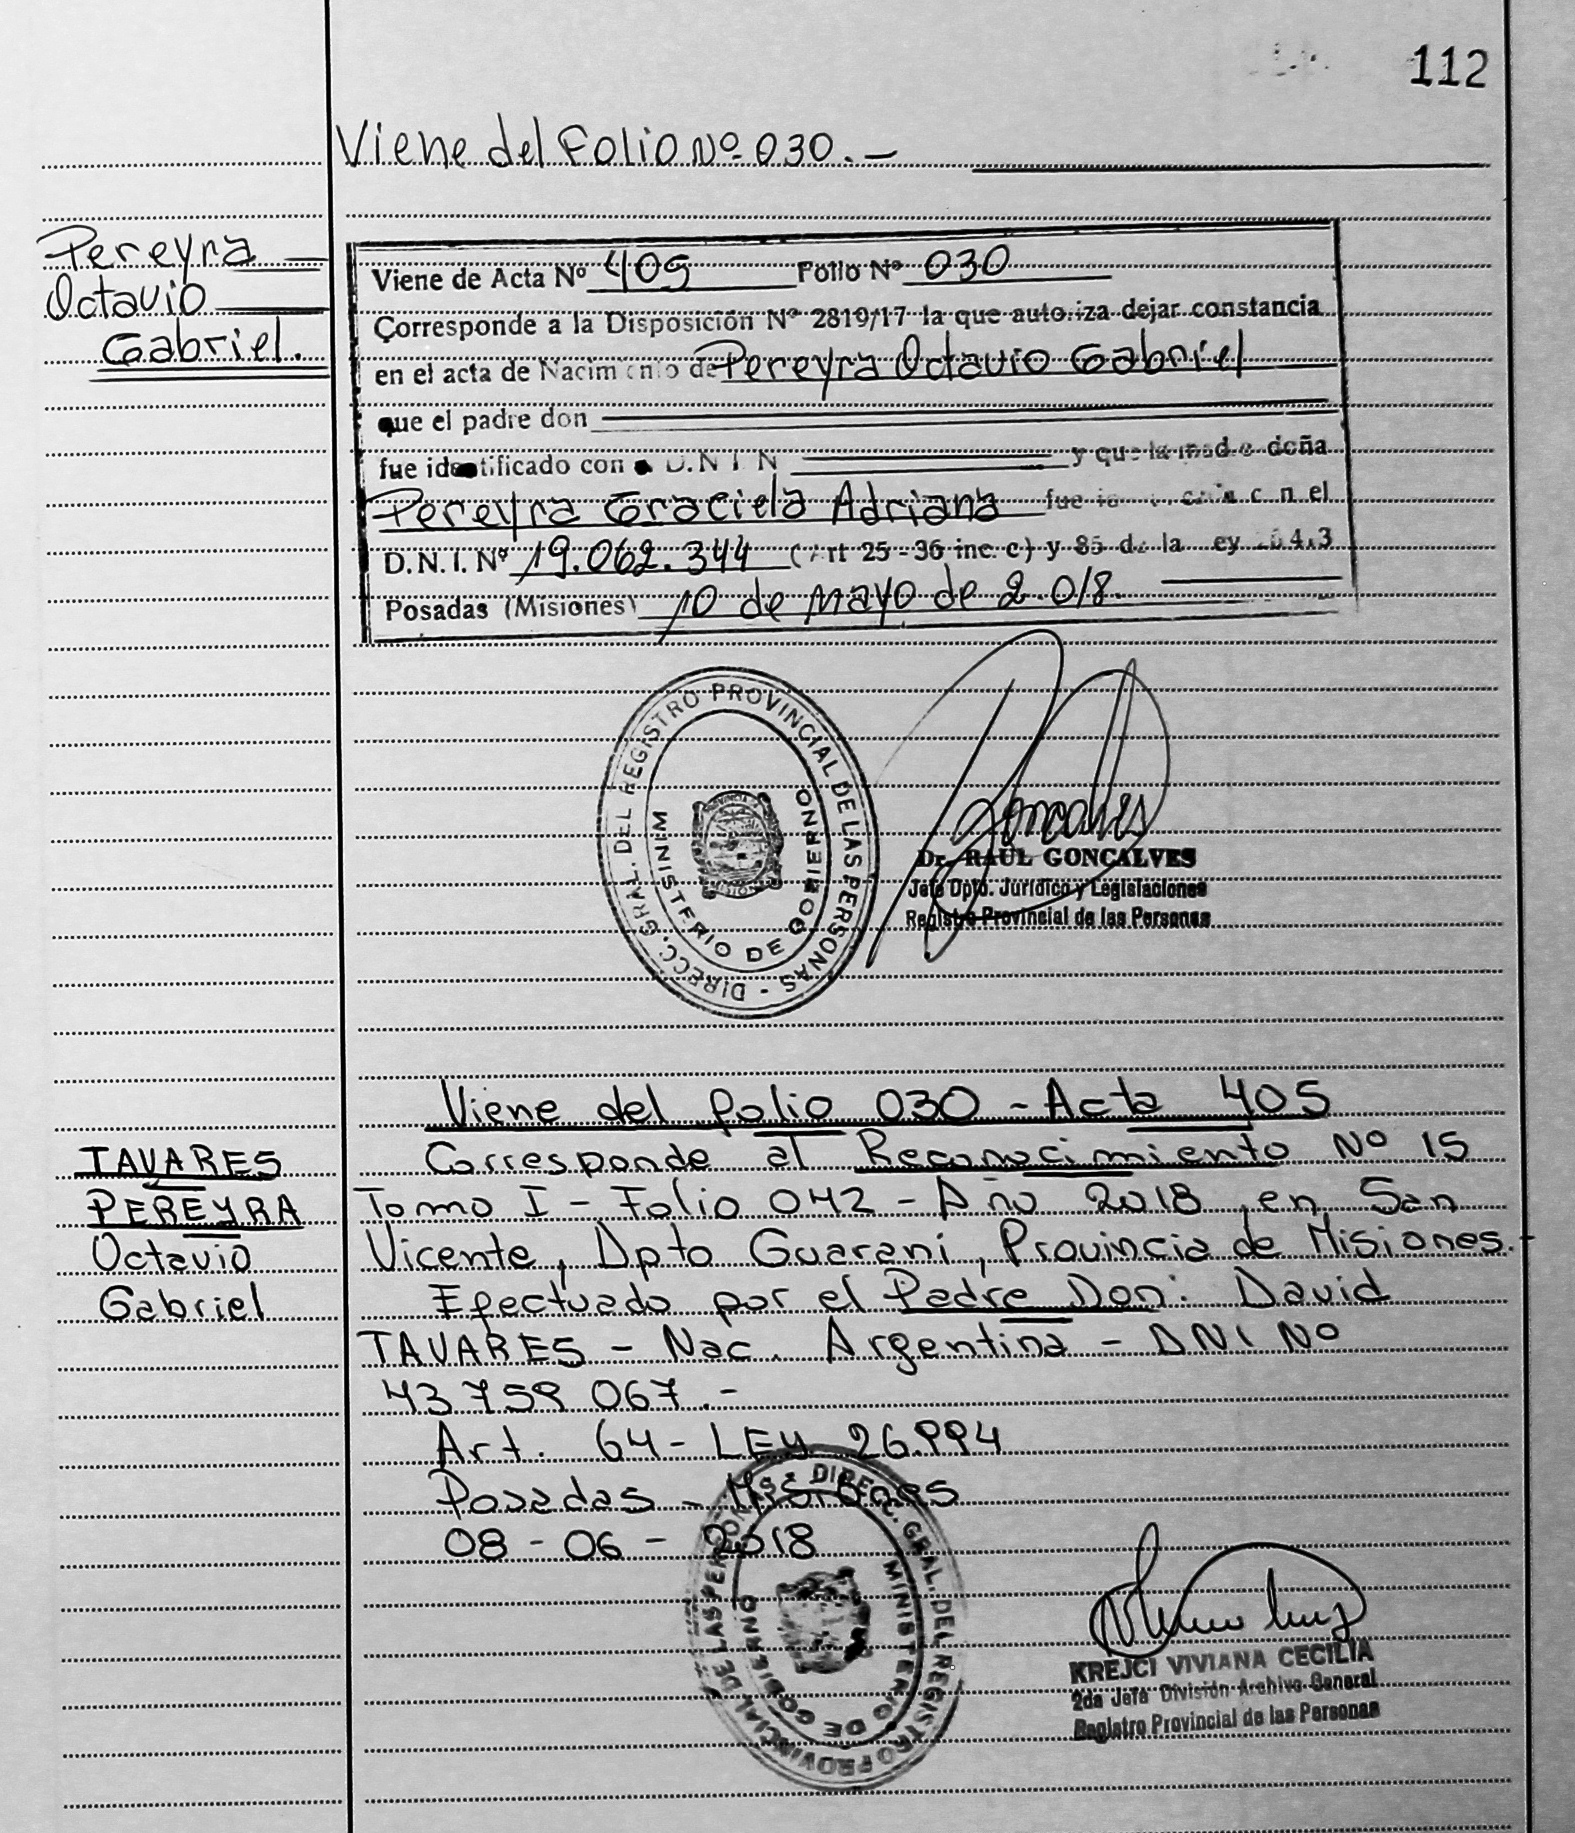 112
Viene del Folio Nº 030.-
Pereyra
Octavio
Gabriel.
Viene de Acta Nº 405 Folio Nº 030
Corresponde a la Disposición Nº 2819/17 la que autoriza dejar constancia
en el acta de Nacimiento de Pereyra Octavio Gabriel
que el padre don
fue identificado con D.N.I. N y que la madre doña
Pereyra Graciela Adriana fue con el
D.N.I. Nº 19.062.344 (Art 25-36 inc. c) y 85 de la ley
Posadas (Misiones) 10 de Mayo de 2.018.
DIRECC. GRAL. DEL REGISTRO PROVINCIAL DE LAS PERSONAS -
MINISTERIO DE GOBIERNO
PROVINCIA
MISIONES
Goncalves
Dr. RAUL GONCALVES
Jefe Dpto. Jurídico y Legislaciones
Registro Provincial de las Personas
Viene del folio 030 - Acta 405
TAVARES
PEREYRA
Octavio
Gabriel
Corresponde al Reconocimiento Nº 15
Tomo I - Folio 042 - Año 2018, en San
Vicente, Dpto Guaraní, Provincia de Misiones.-
Efectuado por el Padre Don: David
TAVARES - Nac. Argentina - DNI Nº
43 759 067.-
Art. 64 - LEY 26.994
Posadas - Misiones
08 - 06 - 2018
DIRECC. GRAL. DEL REGISTRO PROVINCIAL DE LAS PERSONAS
MINISTERIO DE GOBIERNO
KREJCI VIVIANA CECILIA
2da Jefa División Archivo General
Registro Provincial de las Personas